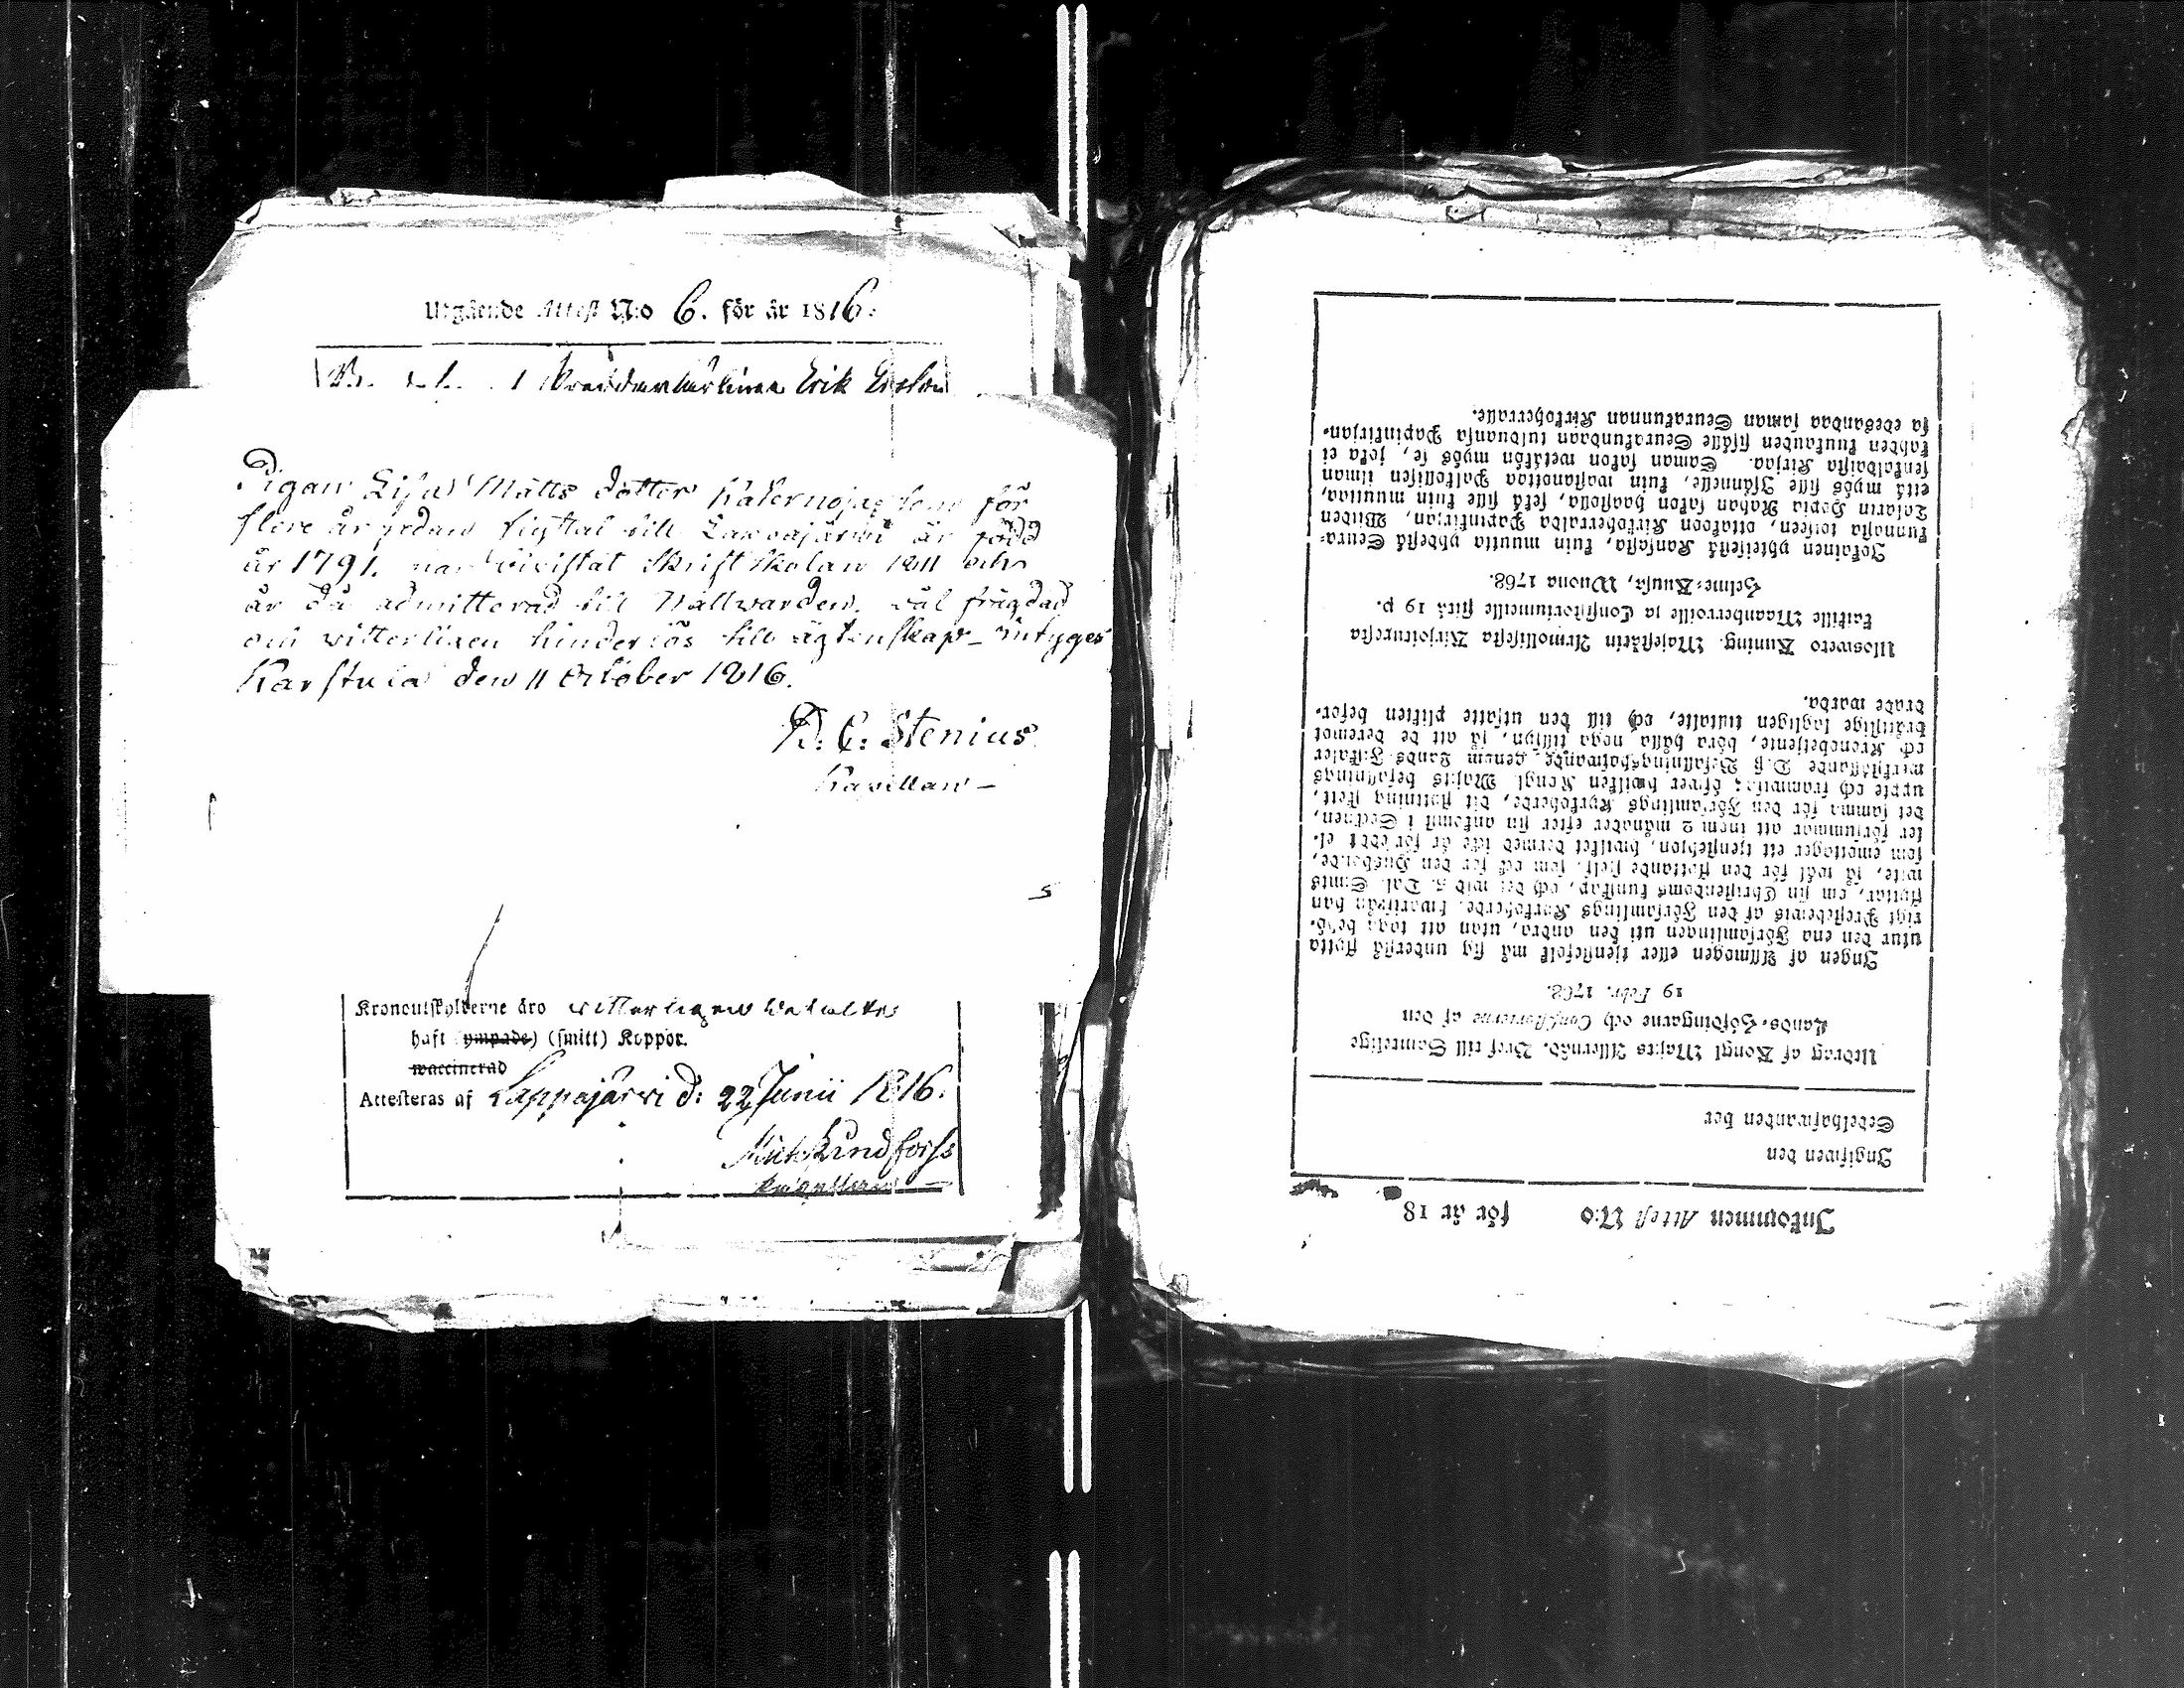 Utgående Attest N:o 6. för år 1816.
Erik
Pigan Lisa Matts dotter som för
flere år sedan till är född
år 1791. har bivistat Skriftskolan 1811 och
är då admitterad till Nattwarden. wäl frägdad
och witterligen hinderlös till ägtenskap intyges
Karstula den 11 October 1816.
C: Stenius
Kapellan
Kronoutskylderne äro witterligen betalte
haft (ympade) (smitt) Koppor.
waccinerad
Attesteras af Lappajärwi d: 22 Junii 1816.
Inkommen Attest N:o för år 18
Ingifwen den
Sedelhafwanden ber
Utdrag af Kongl Maj:ts Allernåd. Bref till Samtelige
Lands-Höfdingarne och Consistorierne af den
19 Febr. 1768.
Ingen af Allmogen eller tjenstefolk må sig understå flytta
utur den ena Församlingen uti den andra, utan att taga
rigt Prestebewis af den Församlings Kyrkoherde, hwarifrån han
flyttar, om sin Christendoms kunskap, och det wid 5. Dal. S:mts
wite, så wäl för den flyttande sjelf, som ock för den Husbonde,
som emottager ett tjenstehjon, hwilket dermed icke är försedt el-
ler försummar att inom 2 månader efter sin ankomst i Socknen,
det samma för den Församlings Kyrkoherde, dit flyttning skett,
uppte och framwisa; öfwer hwilken Kongl. Maj:ts befallnings
werkställande D. H. Befallningshafwande, genom Lands Fiskaler
och Kronobetjente, böra hålla noga tillsyn, så att de deremot
brättslige lagligen tiltalte, och till den utsatte plikten befor-
drade warda.
Uloswето Kuning. Majestätin Armollisesta Kirjoituxesta
kaikille Maanherroille ja Consistoriumeille siitä 19 p.
Helme-Kuusa, Wuona 1768.
Jokainen yhteisestä Kansasta, kuin muutta yhdestä Seura-
kunnasta toiseen, ottakoon Kirkoherralda Papinkirjan, Wiiden
Talarin Hopia Rahan sakon haastolla, sekä sille kuin muuttaa,
että myös sille Isännelle, kuin wastanottaa Palkollisen ilman
senkaldaista Kirjaa. Saman sakon wetäköön myös se, joka ei
kahden kuukauden sisälle Seurakundaan tulduansa Papinkirjan-
sa edesandaa saman Seurakunnan Kirkoherralle.